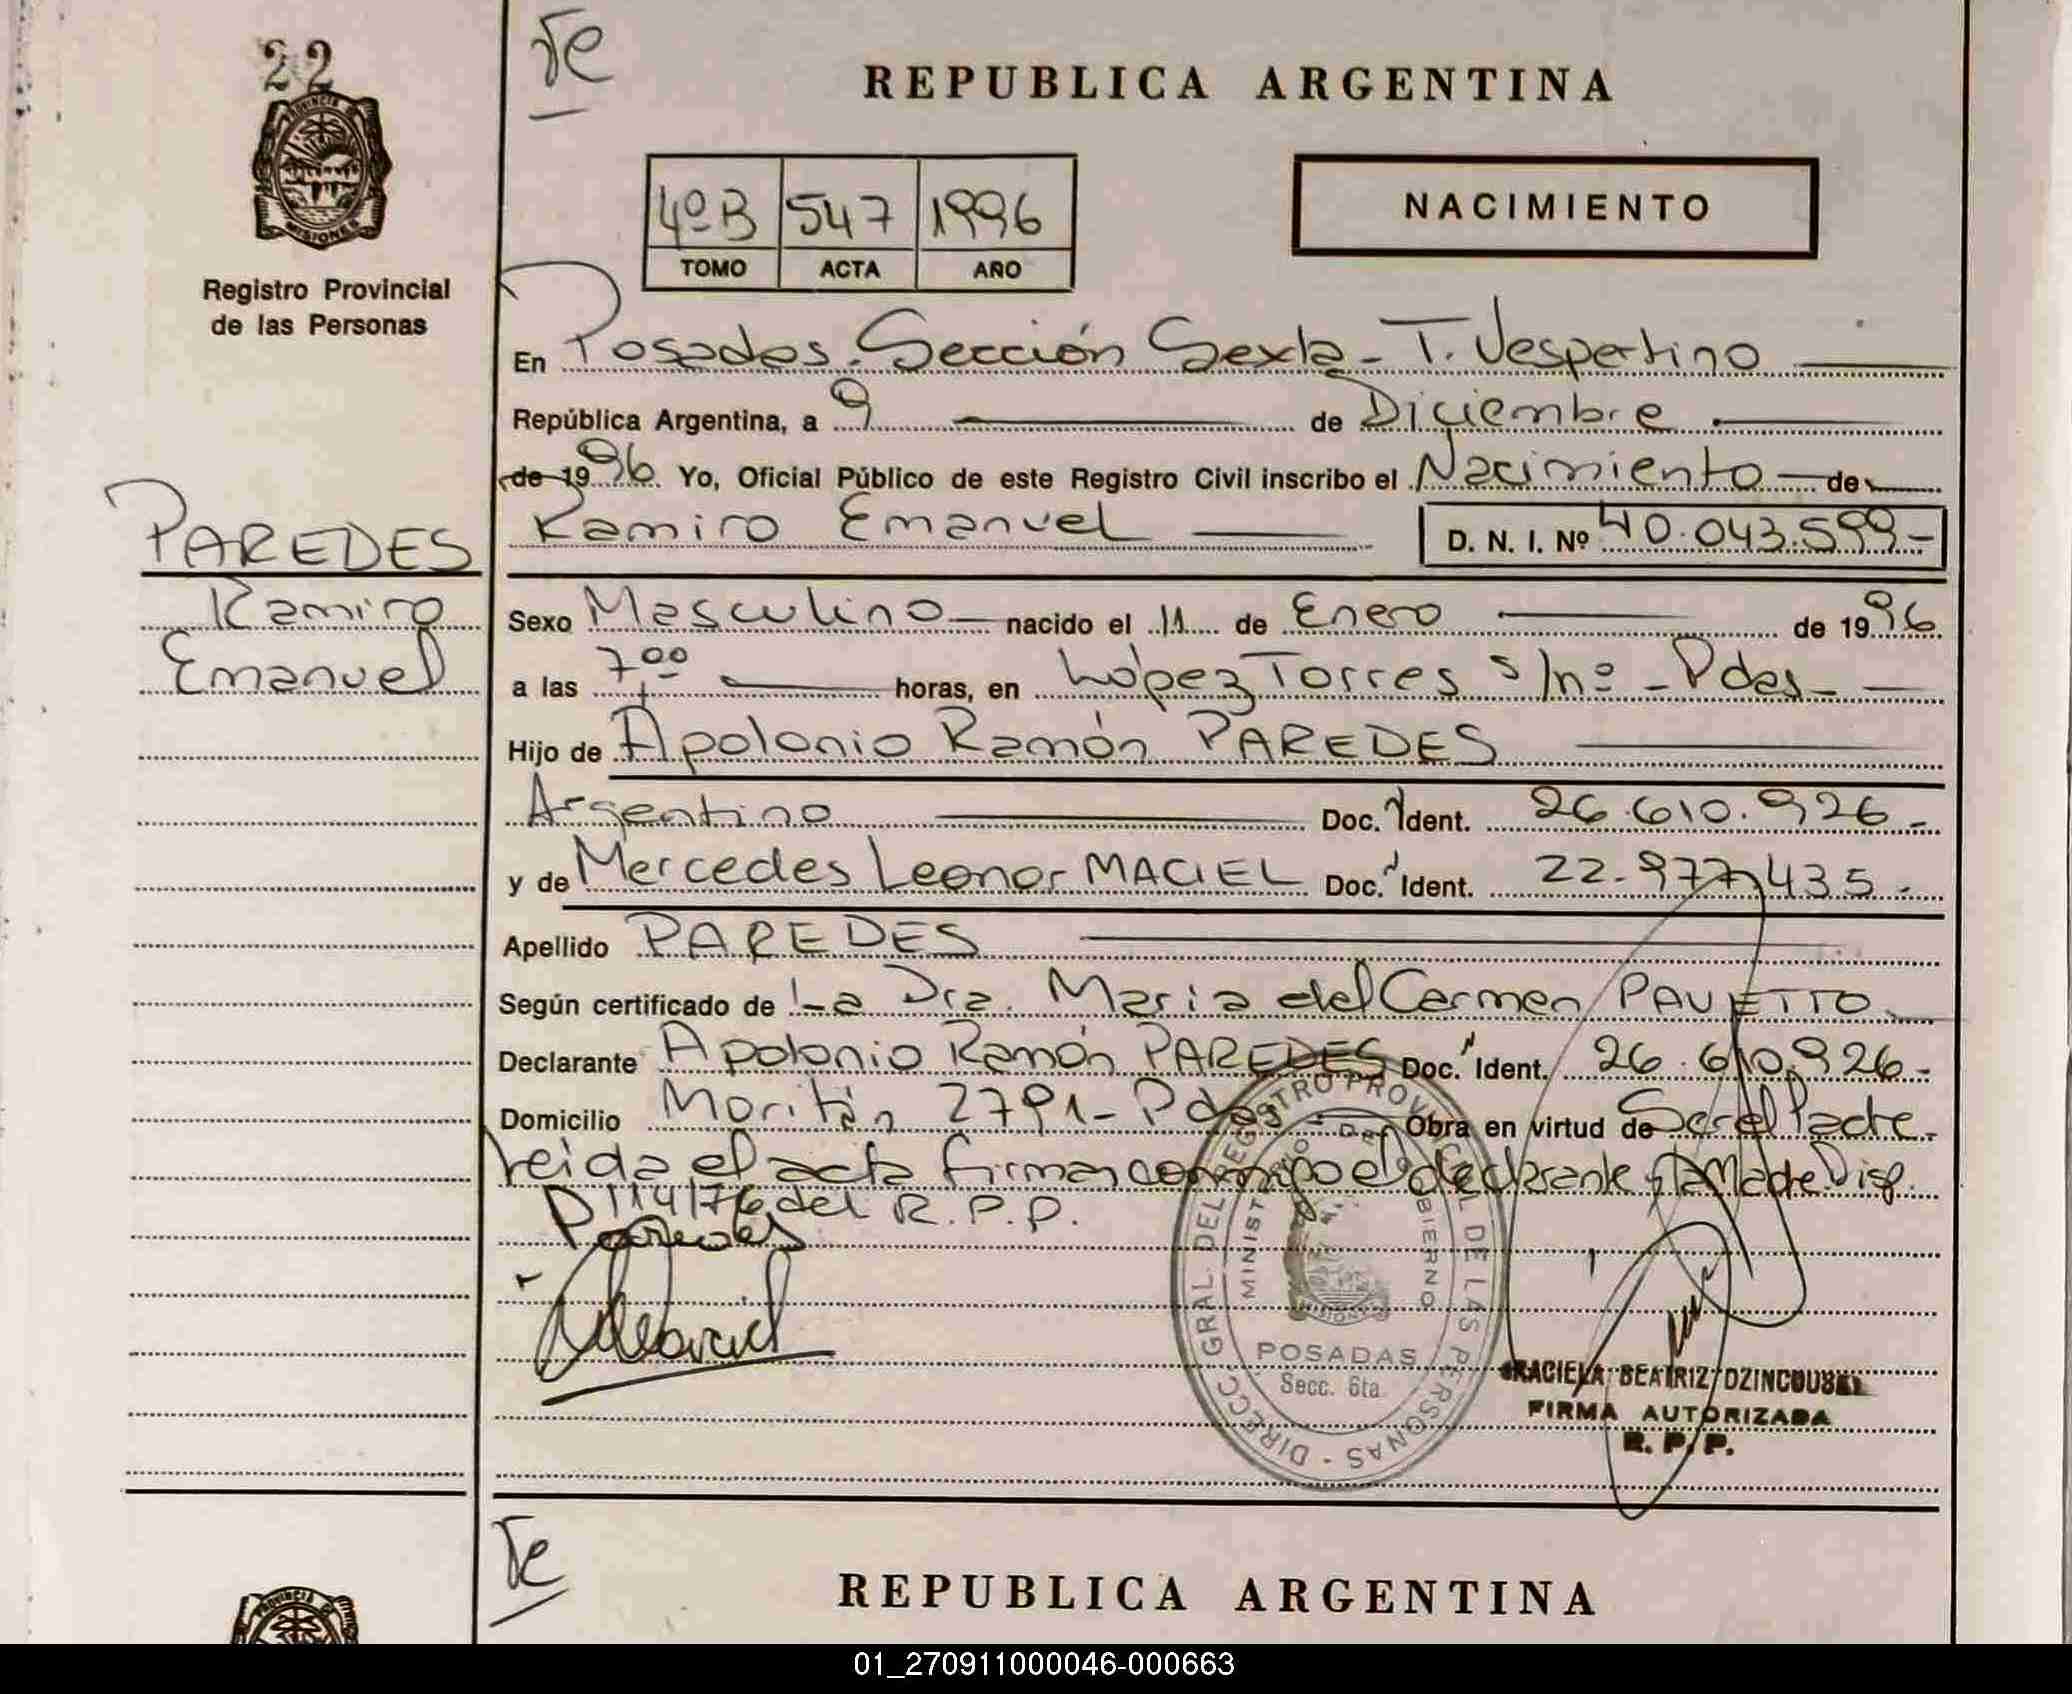 22
PROVINCIA DE
MISIONES
Registro Provincial
de las Personas
PAREDES
Ramiro
Emanuel
Te
REPUBLICA ARGENTINA
4º B 547 1996
TOMO ACTA AÑO
NACIMIENTO
En Posadas. Sección Sexta - T. Vespertino
República Argentina, a 9 de Diciembre
de 1996. Yo, Oficial Público de este Registro Civil inscribo el Nacimiento de
Ramiro Emanuel D. N. I. Nº 40.043.599-
Sexo Masculino nacido el 11 de Enero de 1996
a las 7 00 horas, en López Torres s/nº - Pdas -
Hijo de Apolonio Ramón PAREDES
Argentino Doc. Ident. 26.610.926 -
y de Mercedes Leonor MACIEL Doc. Ident. 22.977.435 -
Apellido PAREDES
Según certificado de La Dra. María del Carmen PAVETTO
Declarante Apolonio Ramón PAREDES Doc. Ident. 26.610.926 -
Domicilio Moritán 2791 - Pdas - Obra en virtud de Ser el Padre.
Leida el acta firman conmigo el declarante y la Madre Disp.
114/76 del R.P.P.
Paredes
DIRECC. GRAL. DEL REGISTRO PROVINCIAL DE LAS PERSONAS
MINIST GOBIERNO
MISIONES
POSADAS
Secc. 6ta
GRACIELA BEATRIZ
FIRMA AUTORIZADA
R. P. P.
Te
PROVINCIA DE
REPUBLICA ARGENTINA
01_270911000046-000663